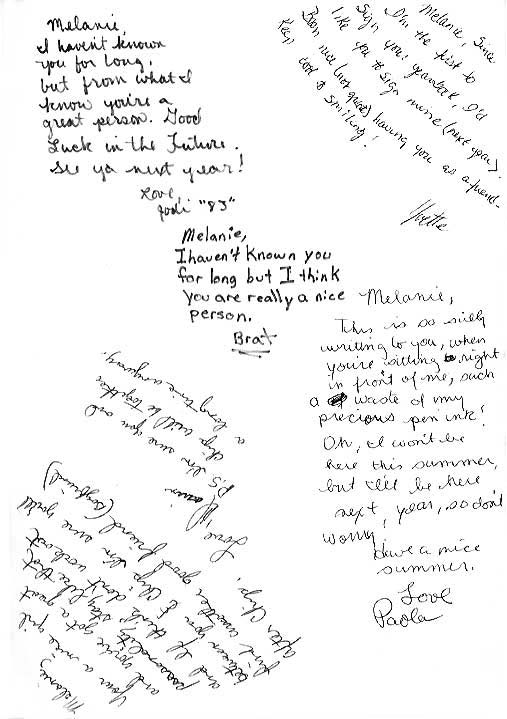 Melanie,
I haven't known
you for long,
but from what I
know you're a
great person. Good
Luck in the Future.
See ya next year!
Love,
Jodi "83"
Melanie, Since
I'm the first to
Sign your yearbook, I'd
like you to sign mine (next year).
Been nice (not great) having you as a friend.
Keep cool & smiling!
Yvette
Melanie,
I haven't known you
for long but I think
you are really a nice
person.
Brat
Melanie,
This is so silly
writing to you, when
you're sitting right
in front of me, such
a waste of my
precious pen ink!
Oh, I won't be
here this summer,
but I'll be here
next year, so don't
worry,
Have a nice
summer.
Love
Paola
Melanie,
Your a nice girl
and you've got a great
personality, stay like that
and if things don't work out
between you & Chip, I'm sure you'll
find another good friend (boyfriend)
after Chip.
Love
P.S. I'm sure you and
Chip will be together
a long time anyway.